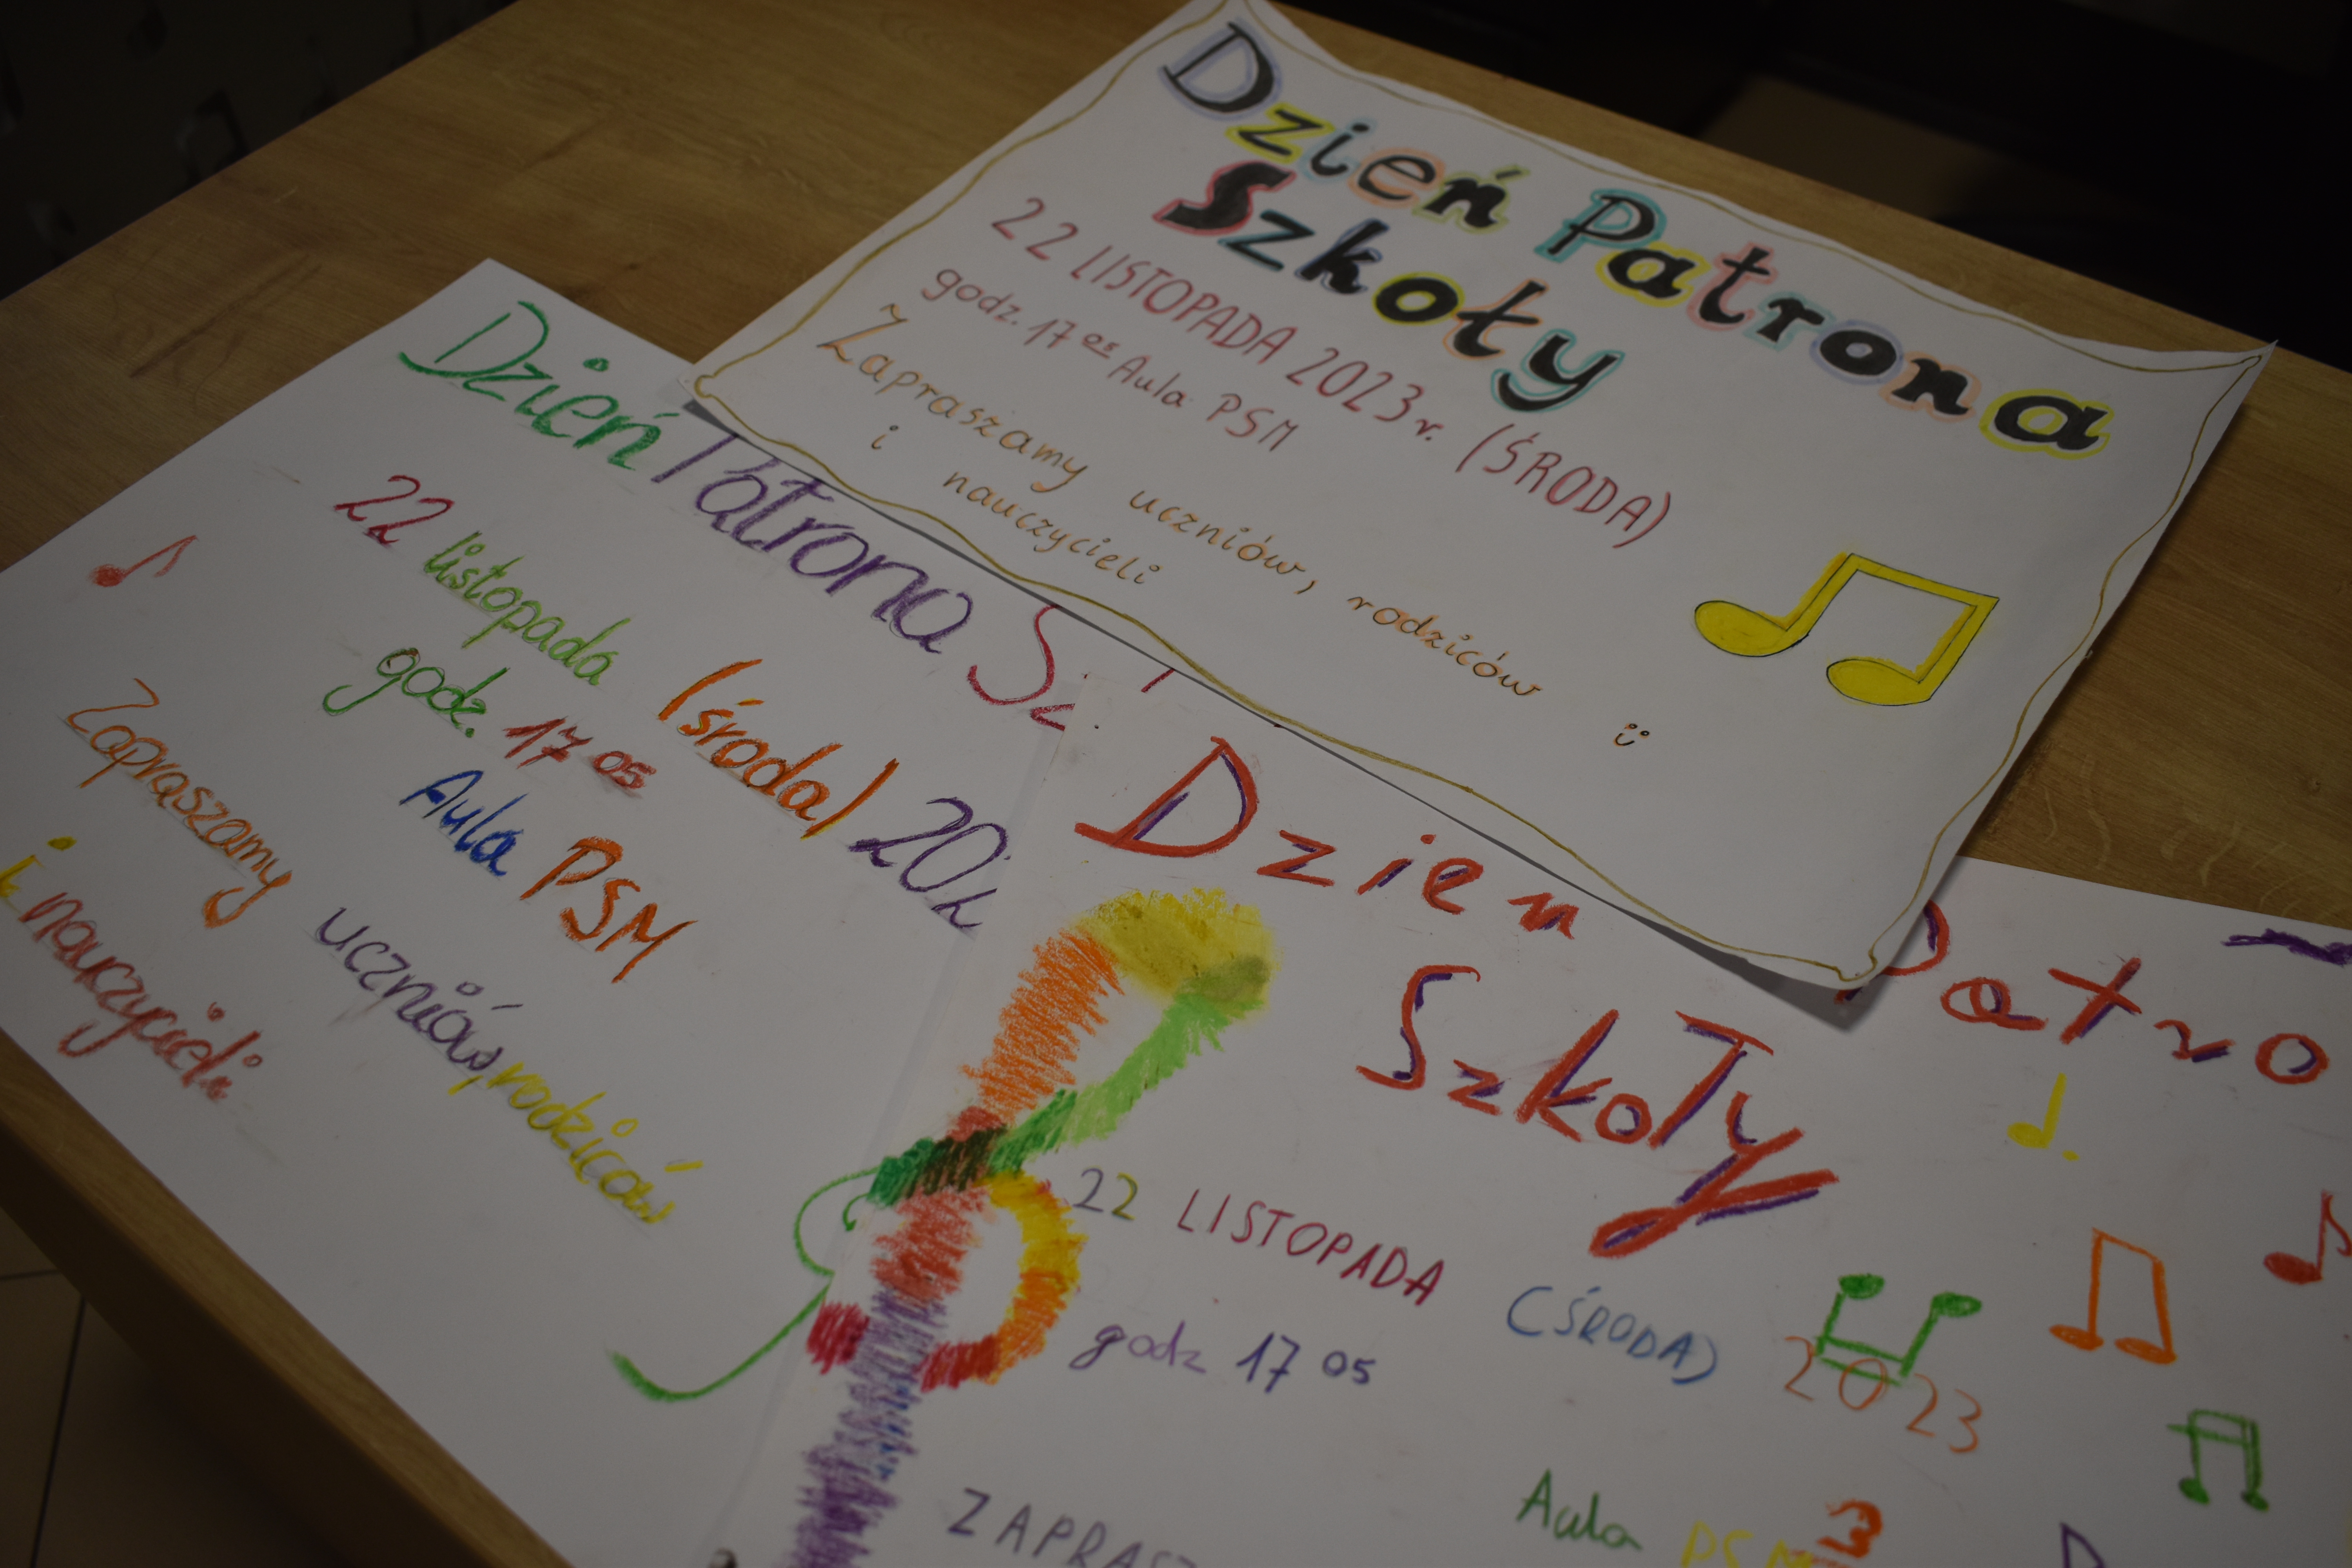 Dzień Patrona
Szkoły
22 LISTOPADA 2023 r. (ŚRODA)
godz. 17 05 Aula PSM
Zapraszamy uczniów, rodziców
i nauczycieli
Dzień Patrona
22 listopada (środa)
godz. 17 05
Aula PSM
Zapraszamy uczniów, rodziców
i nauczycieli
Dzien Patro
Szkoły
22 LISTOPADA (ŚRODA) 2023
godz 17 05
Aula PSM
ZAPRASZ